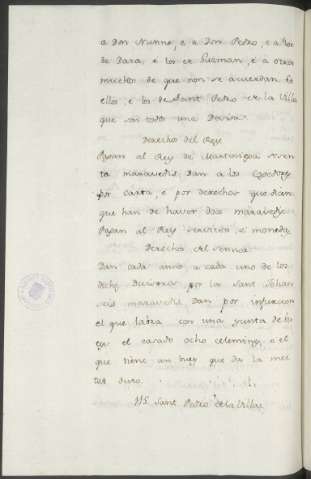 a Don Nunno, e a Don Pedro, e a los
de Daza, e los de Guzman, e a otros
muchos de que non se acuerdan
ellos, e los de Sant Pedro de la Villa
que son todo una Divisa
Derechos del Rey
Pagan al Rey de Martiniega
ta maravedis, dan a los
por carta, e por derechos que dicen
que han de haver doce maravedis
Pagan al Rey servicios, e moneda
Derechos del Sennor
Dan cada anno a cada uno de los
dichos Diviseros por la Sant Johan
seis maravedis. Dan por infurcion
el que labra con una yunta de
el casado ocho celemines, e el
que tiene un buey que da la mee
tat duro.
Sant Pedro de la Villa